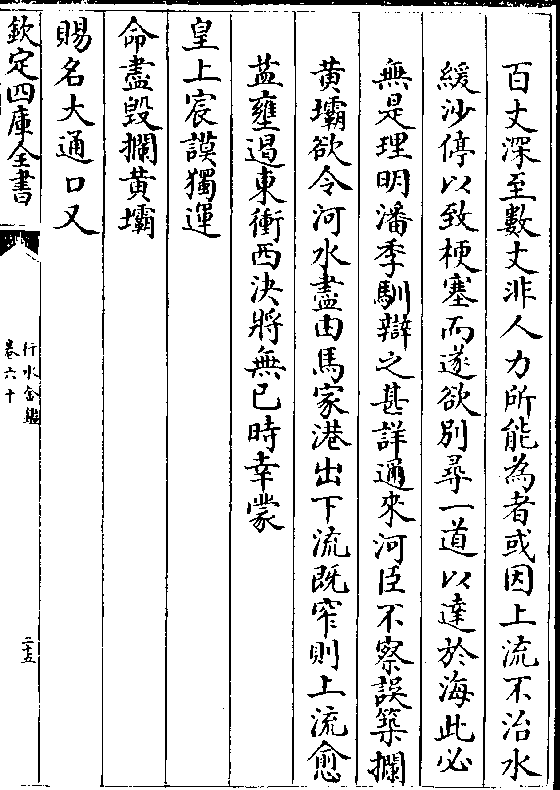 百丈深至數丈非人力所能為者或因上流不治水
緩沙停以致梗塞而遂欲別尋一道以達於海此必
無是理明潘季馴辯之甚詳邇來河臣不察誤築攔
黄壩欲令河水盡由馬家港出下流既窄則上流愈
益壅遏東衝西決將無已時幸蒙
皇上宸謨獨運
命盡毀攔黄壩
賜名大通口又
欽定四庫全書
行水金鑑
卷六十
二十五